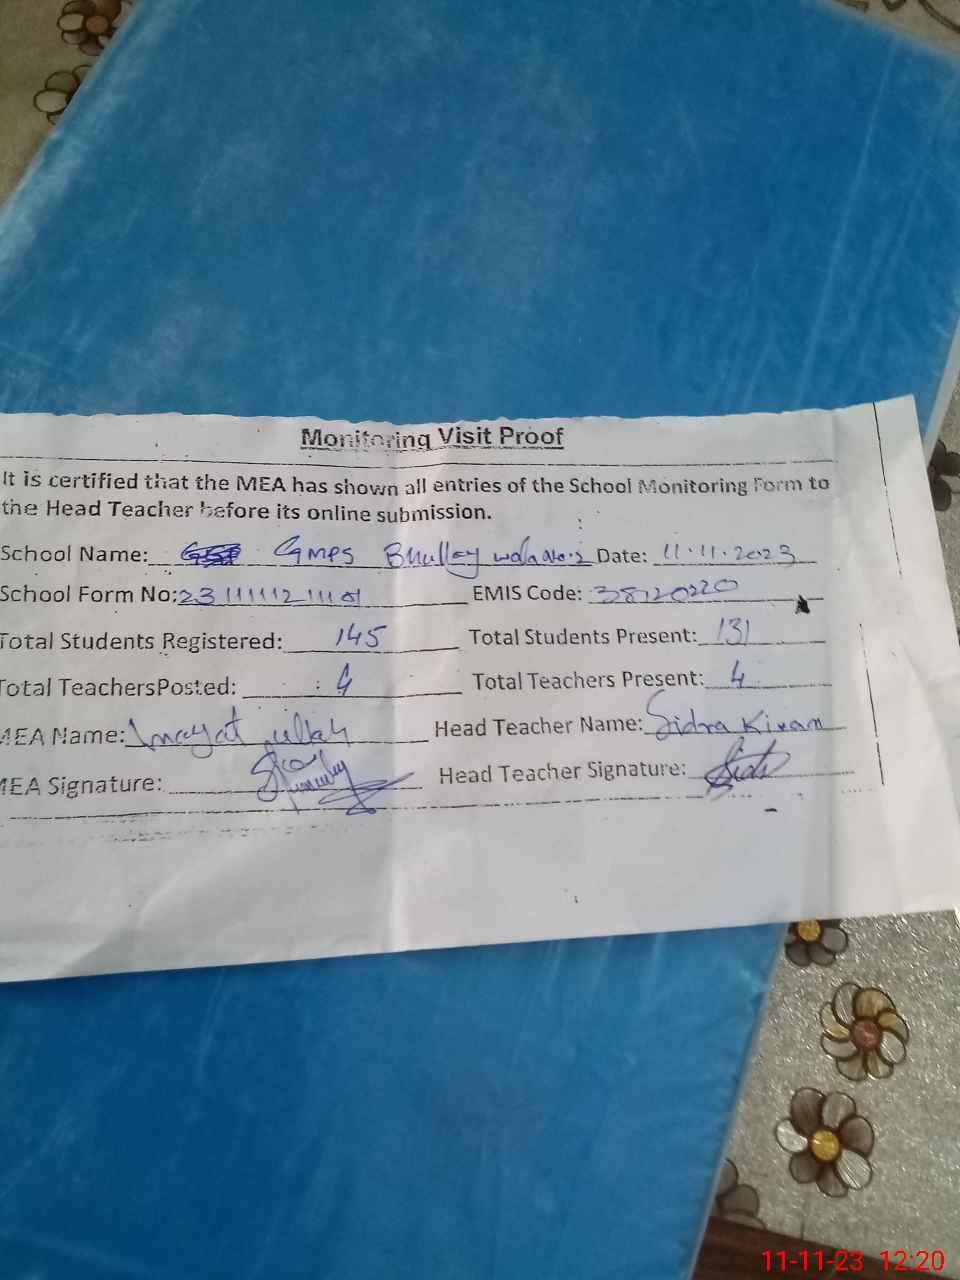 Monitoring Visit Proof
It is certified that the MEA has shown all entries of the School Monitoring Form to
the Head Teacher before its online submission.
School Name: GMPS Bhullay Date: 11.11.2023
School Form No: EMIS Code: 38120220
Total Students Registered: 145 Total Students Present: 131
Total TeachersPosted: 4 Total Teachers Present: 4
MEA Name: Inayat ullah Head Teacher Name: Sidra Kiran
MEA Signature: Head Teacher Signature:
11-11-23 12:20